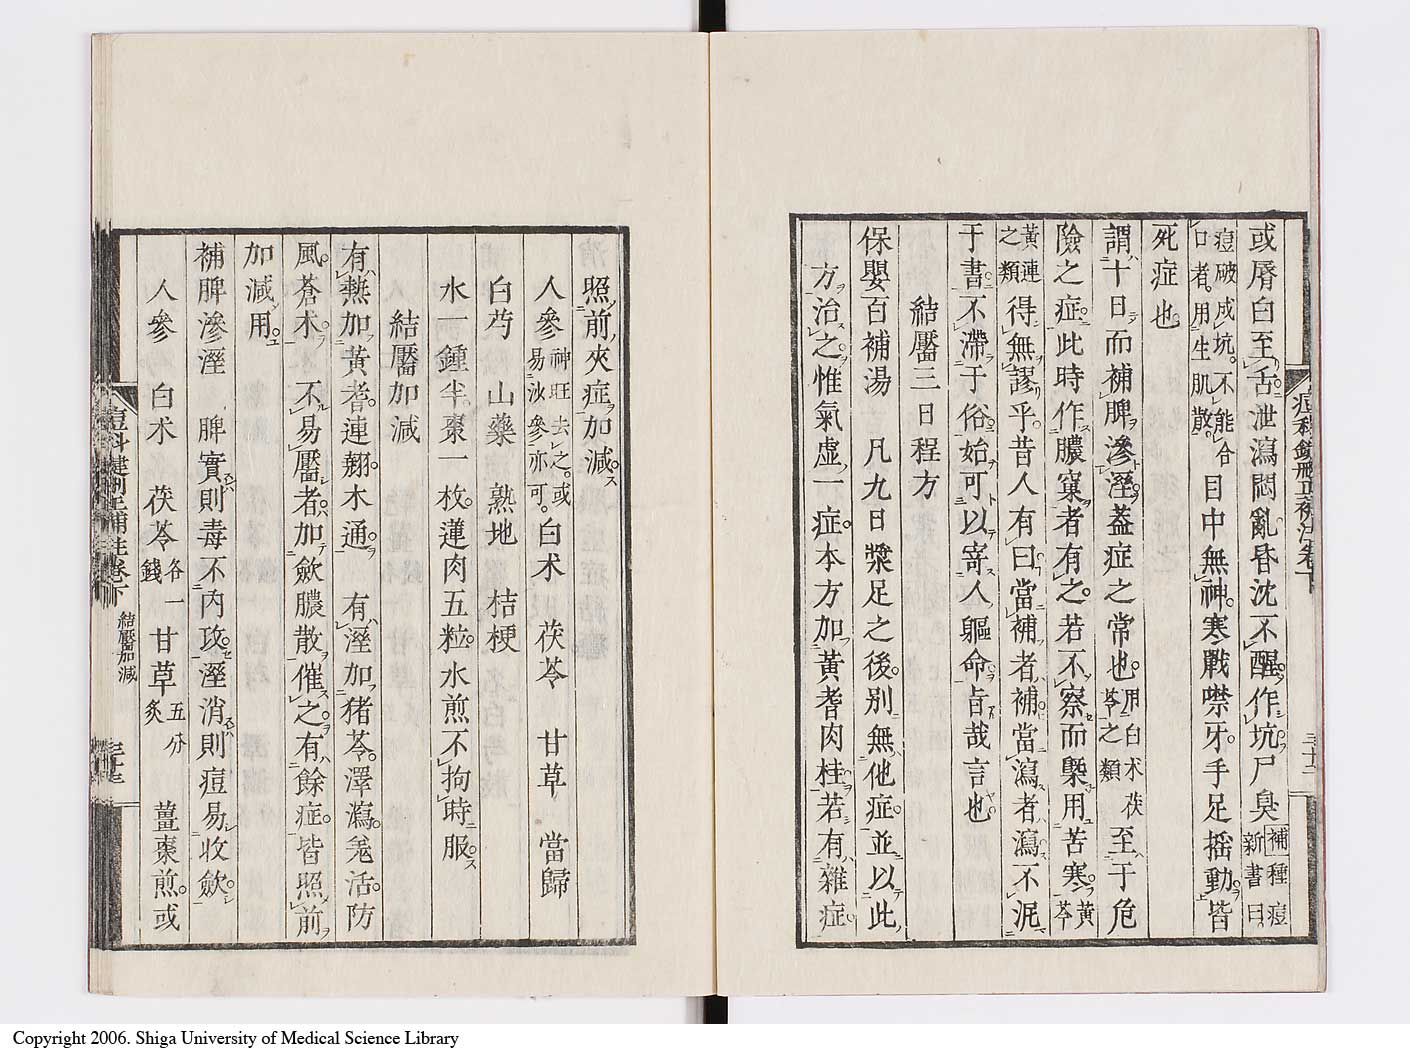 或脣白至舌泄瀉悶亂昏沈不醒作坑尸臭補種痘新書曰
痘破成坑不能合口者用生肌散目中無神寒戰噤牙手足搖動皆
死症也
謂十日而補脾滲溼蓋症之常也用白朮茯苓之類至于危
險之症此時作膿窠者有之若不察而槩用苦寒黃芩
黃連之類得無謬乎昔人有曰當補者補當瀉者瀉不泥
于書不滯于俗始可以寄人軀命旨哉言也
結靨三日程方
保嬰百補湯 凡九日漿足之後別無他症並以此
方治之惟氣虛一症本方加黃耆肉桂若有雜症
痘科鍵刪正補註卷下
三十二
照前夾症加減
人參神旺去之或易汝參亦可白朮 茯苓 甘草 當歸
白芍 山藥 熟地 桔梗
水一鍾半棗一枚蓮肉五粒水煎不拘時服
結靨加減
有熱加黃耆連翹木通 有溼加猪苓澤瀉羌活防
風蒼朮 不易靨者加斂膿散催之有餘症皆照前
加減用
補脾滲溼 脾實則毒不內攻溼消則痘易收斂
人參 白朮 茯苓各一錢 甘草五分炙 薑棗煎或
痘科鍵刪正補註卷下
結靨加減
三十三
Copyright 2006. Shiga University of Medical Science Library